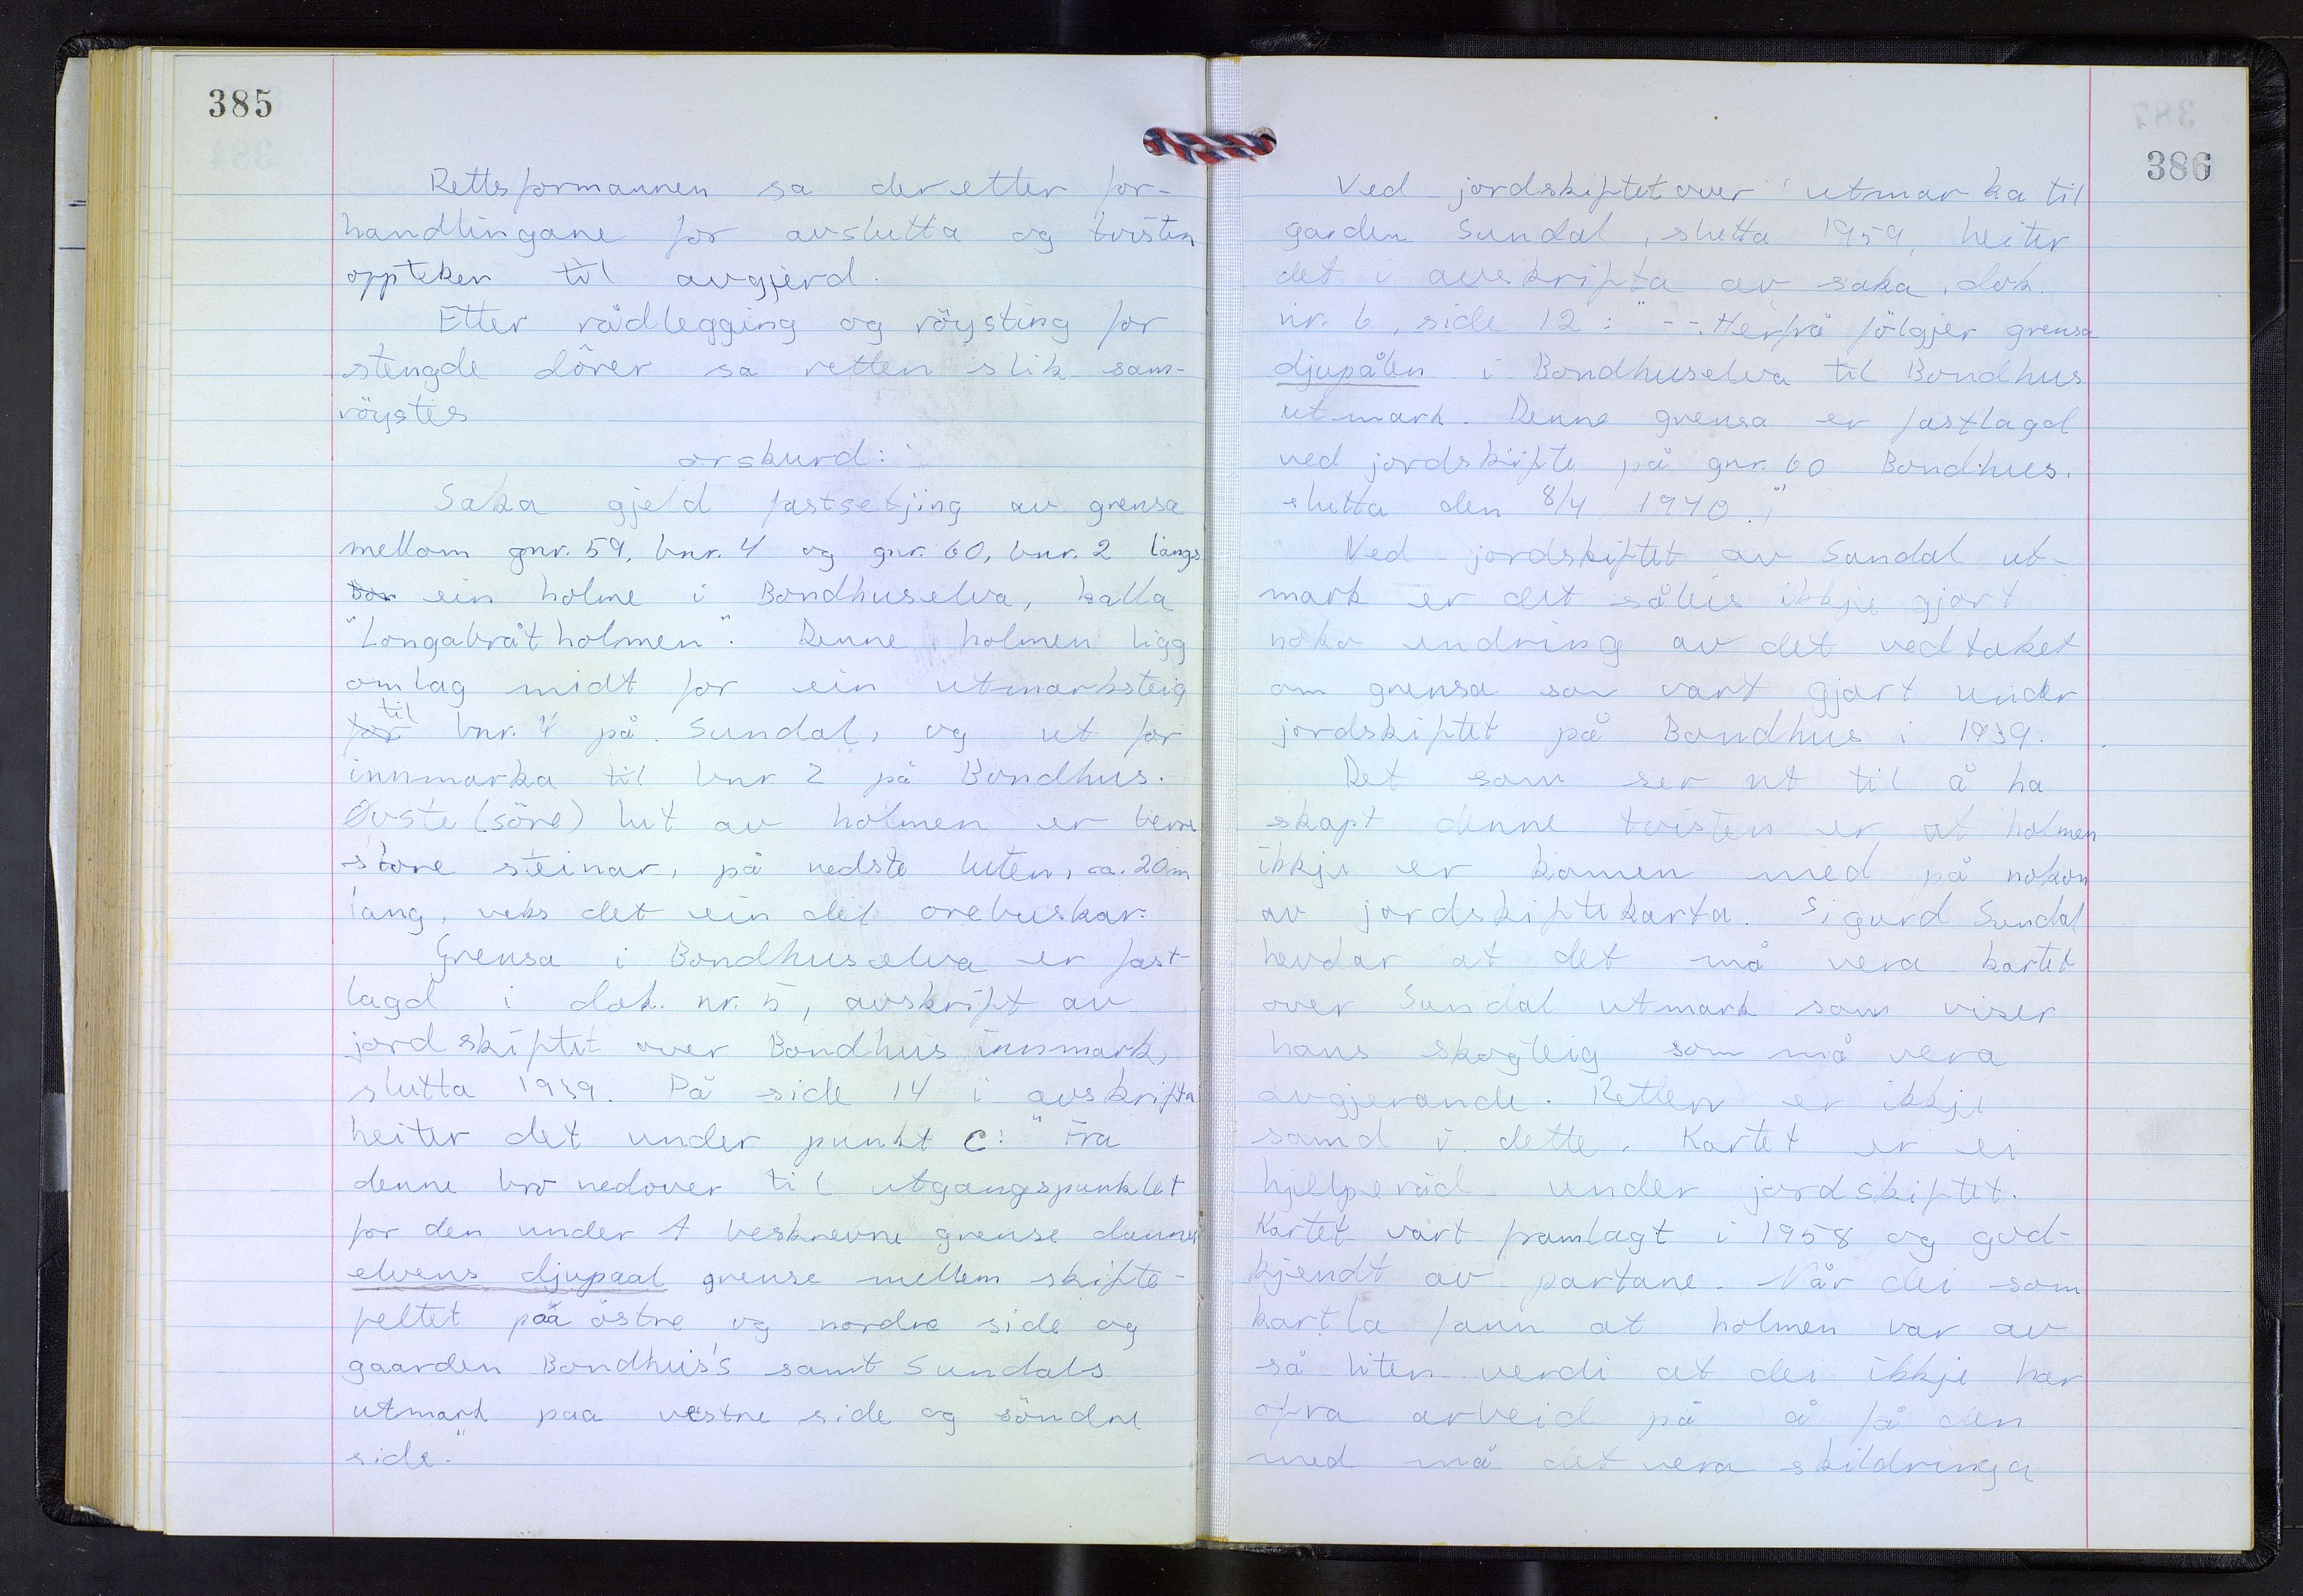 385
Rettsformannen sa deretter for-
handlingane for avslutta og tvisten
oppteken til avgjerd.
Etter rådlegging og röysting for
stengde dörer sa retten slik sam-
röystes
orskurd:
Saka gjeld fastsetjing av grensa
mellom gnr. 59, bnr. 4 og gnr. 60, bnr. 2 langs
ein holme i Bondhuselva, kalla
"Longabråtholmen". Denne holmen ligg
omlag midt for ein utmarksteig
for til bnr. 4 på Sundal, og ut for
innmarka til bnr 2 på Bondhus.
Øvste (söre) lut av holmen er berre
store steinar, på nedste luten, ca. 20 m
lang, veks det ein del orebuskar.
Grensa i Bondhuselva er fast-
lagd i dok. nr. 5, avskrift av
jordskiftet over Bondhus innmark,
slutta 1939. På side 14 i avskrifta
heiter det under punkt C: "Fra
denne bro nedover til utgangspunktet
for den under A beskrevne grense danner
elvens djupaal grense mellem skifte-
feltet på östre og nordre side og
gaarden Bondhus's samt Sundals
utmark paa vestre side og söndre
side."
386
Ved jordskiftet over utmarka til
garden Sundal, slutta 1959, heiter
det i avskrifta av saka, dok.
nr. 6, side 12: "--. Herfrå fölgjer grensa
djupålen i Bondhuselva til Bondhus
utmark. Denne grensa er fastlagd
ved jordskifte på gnr. 60 Bondhus,
slutta den 8/4 1940."
Ved jordskiftet av Sundal ut-
mark er det såleis ikkje gjort
noko endring av det vedtaket
om grensa som vart gjort under
jordskiftet på Bondhus i 1939.
Det som ser ut til å ha
skapt denne tvisten er at holmen
ikkje er komen med på nokon
av jordskiftekarta. Sigurd Sundal
hevdar at det må vera kartet
over Sundal utmark som viser
hans skogteig som må vera
avgjerande. Retten er ikkje
samd i dette. Kartet er ei
hjelperåd under jordskiftet.
Kartet vart framlagt i 1958 og god-
kjendt av partane. Når dei som
kartla fann at holmen var av
så liten verdi at dei ikkje har
ofra arbeid på å få den
med må det vera skildringa